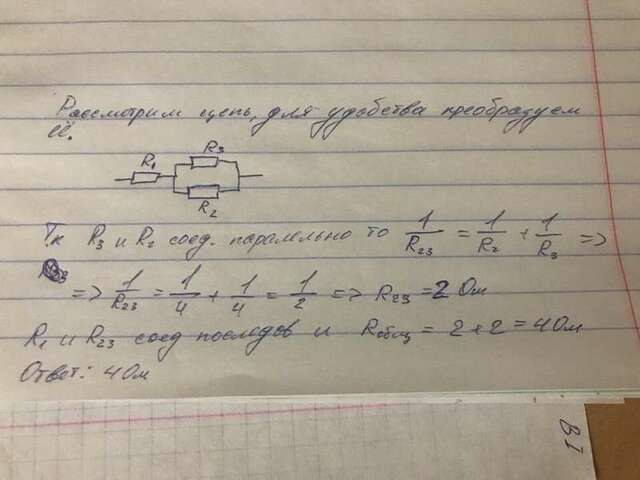 Рассмотрим цепь, для удобства преобразуем
её.
R₁ R₃
R₂
Т.к R₃ и R₂ соед. паралельно то 1/R₂₃ = 1/R₂ + 1/R₃ =>
=> 1/R₂₃ = 1/4 + 1/4 = 1/2 => R₂₃ = 2 Ом
R₁ и R₂₃ соед последов и Rобщ = 2 + 2 = 4 Ом
Ответ: 4 Ом
В I